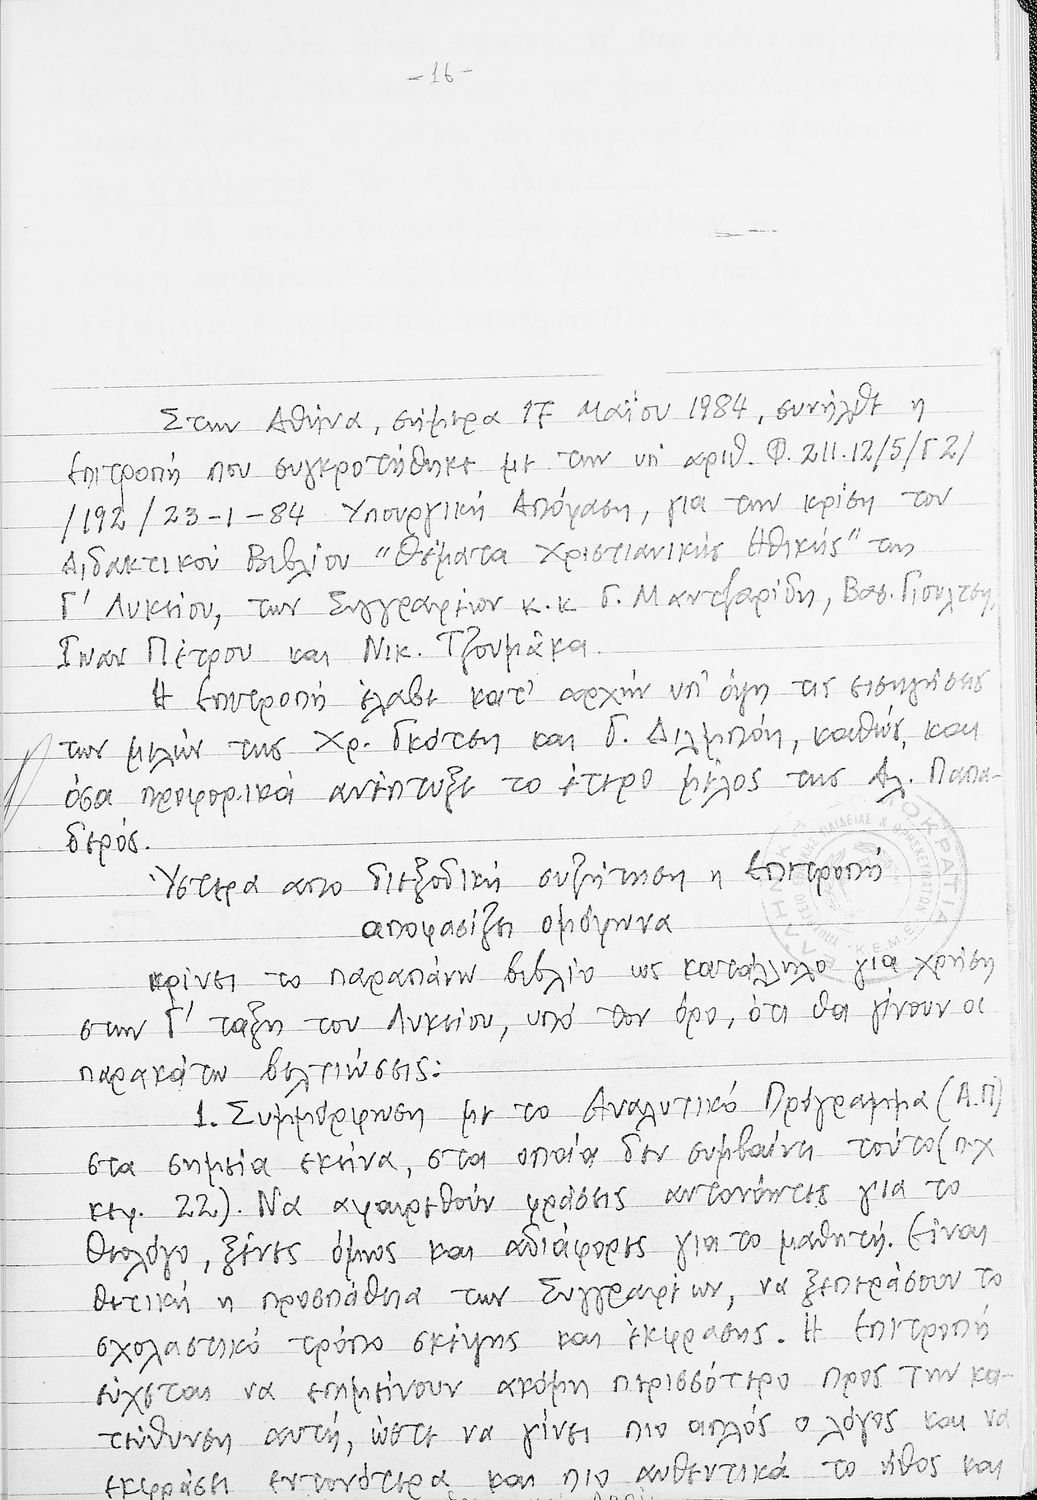 -16-
Στην Αθήνα, σήμερα 17 Μαΐου 1984, συνήλθε η
Επιτροπή που συγκροτήθηκε με την υπ' αριθ. Φ. 211.12/5/Γ2/
/192/23-1-84 Υπουργική Απόφαση, για την κρίση του
Διδακτικού Βιβλίου "Θέματα Χριστιανικής Ηθικής" της
Γ' Λυκείου, των Συγγραφέων κ.κ Γ. Μαντζαρίδη, Βασ. Γιούλτση,
Ιωαν Πέτρου και Νικ. Τζουμάκα.
Η Επιτροπή έλαβε κατ' αρχήν υπ' όψη τις εισηγήσεις
των μελών της Χρ. Γκότση και Γ. Διλμπόη, καθώς, και
όσα προφορικά ανέπτυξε το έτερο μέλος της Αλ. Παπα-
δερός.
Ύστερα απο διεξοδική συζήτηση η Επιτροπή
αποφασίζει ομόφωνα
κρίνει το παραπάνω βιβλίο ως κατάλληλο για χρήση
στην Γ' τάξη του Λυκείου, υπό τον όρο, ότι θα γίνουν οι
παρακάτω βελτιώσεις:
1. Συμμόρφωση με το Αναλυτικό Πρόγραμμα (Α.Π)
στα σημεία εκείνα, στα οποία δεν συμβαίνει τούτο (πχ
κεφ. 22). Να αφαιρεθούν φράσεις αυτονόητες για το
θεολόγο, ξένες όμως και αδιάφορες για το μαθητή. Είναι
θετική η προσπάθεια των Συγγραφέων, να ξεπεράσουν το
σχολαστικό τρόπο σκέψης και έκφρασης. Η Επιτροπή
εύχεται να επιμείνουν ακόμη περισσότερο προς την κα-
τεύθυνση αυτή, ώστε να γίνει πιο απλός ο λόγος και να
εκφράσει εντονότερα και πιο αυθεντικά το ήθος και